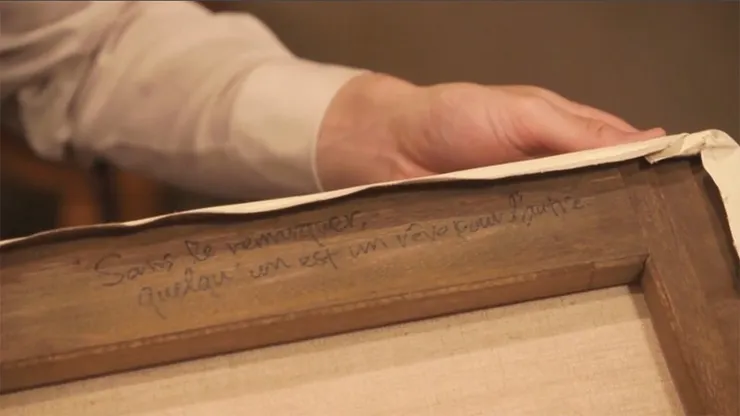 "Sans le remarquer,
quelqu'un est un rêve pour l'autre